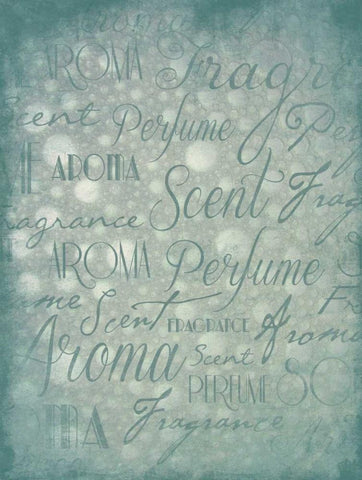 Aroma
AROMA Fragr
Scent Perfume Per
ME AROMA Scent Frag
ragrance
AROMA Perfume
ume Scent FRAGRANCE Fr
Aroma Scent Aroma
PERFUME SC
Fragrance